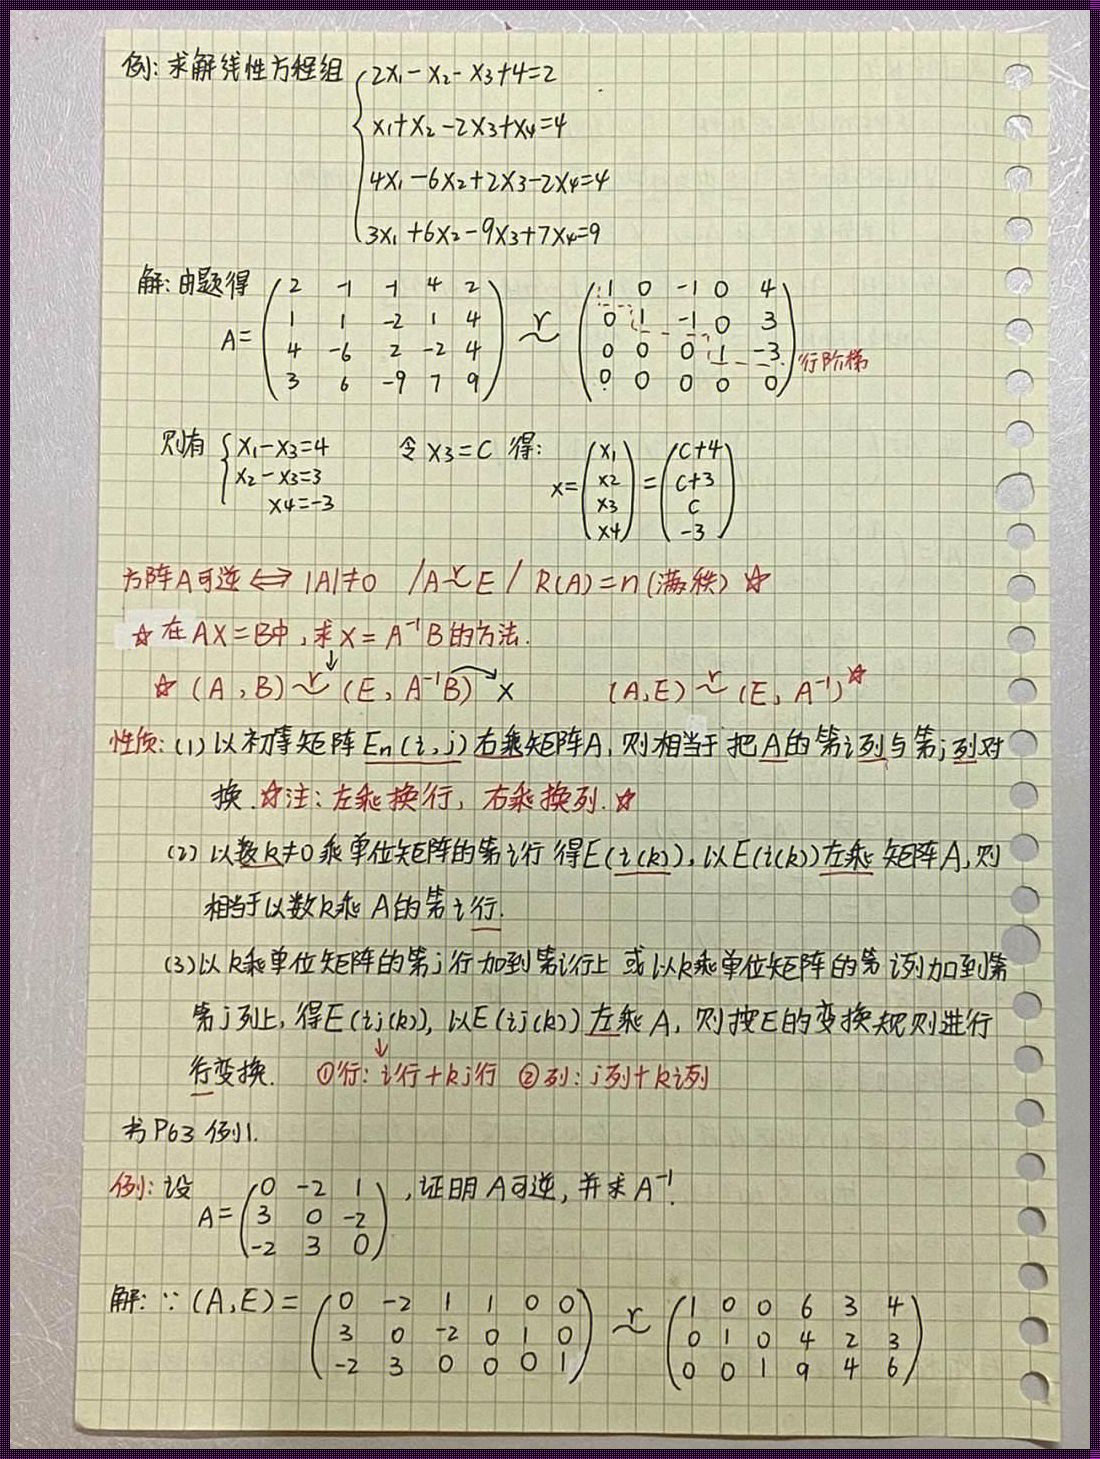 例: 求解线性方程组 2x₁-x₂-x₃+4=2
x₁+x₂-2x₃+x₄=4
4x₁-6x₂+2x₃-2x₄=4
3x₁+6x₂-9x₃+7x₄=9
解: 由题得
2 -1 -1 4 2
1 1 -2 1 4
A=
4 -6 2 -2 4
3 6 -9 7 9
r
~
1 0 -1 0 4
0 1 -1 0 3
0 0 0 1 -3
0 0 0 0 0
行阶梯
则有 x₁-x₃=4
x₂-x₃=3
x₄=-3
令 x₃=C 得:
x= (x₁ x₂ x₃ x₄) = (C+4 C+3 C -3)
方阵A可逆 ⟺ |A|≠0 / A r~ E / R(A)=n (满秩) ☆
☆ 在AX=B中, 求X=A⁻¹B的方法.
☆ (A, B) r~ (E, A⁻¹B) → X (A,E) r~ (E, A⁻¹) ☆
性质: (1) 以初等矩阵En(i,j)右乘矩阵A, 则相当于把A的第i列与第j列对
换. ☆注: 左乘换行, 右乘换列. ☆
(2) 以数k≠0乘单位矩阵的第i行得E(i(k)), 以E(i(k))左乘矩阵A, 则
相当于以数k乘A的第i行.
(3) 以k乘单位矩阵的第j行加到第i行上 或以k乘单位矩阵的第i列加到第
第j列上, 得E(ij(k)), 以E(ij(k))左乘A, 则按E的变换规则进行
行变换. ①行: i行+kj行 ②列: j列+ki列
书P63 例1.
例: 设
0 -2 1
A= 3 0 -2
-2 3 0
, 证明A可逆, 并求A⁻¹.
解: ∵ (A,E) =
0 -2 1 1 0 0
3 0 -2 0 1 0
-2 3 0 0 0 1
r
~
1 0 0 6 3 4
0 1 0 4 2 3
0 0 1 9 4 6